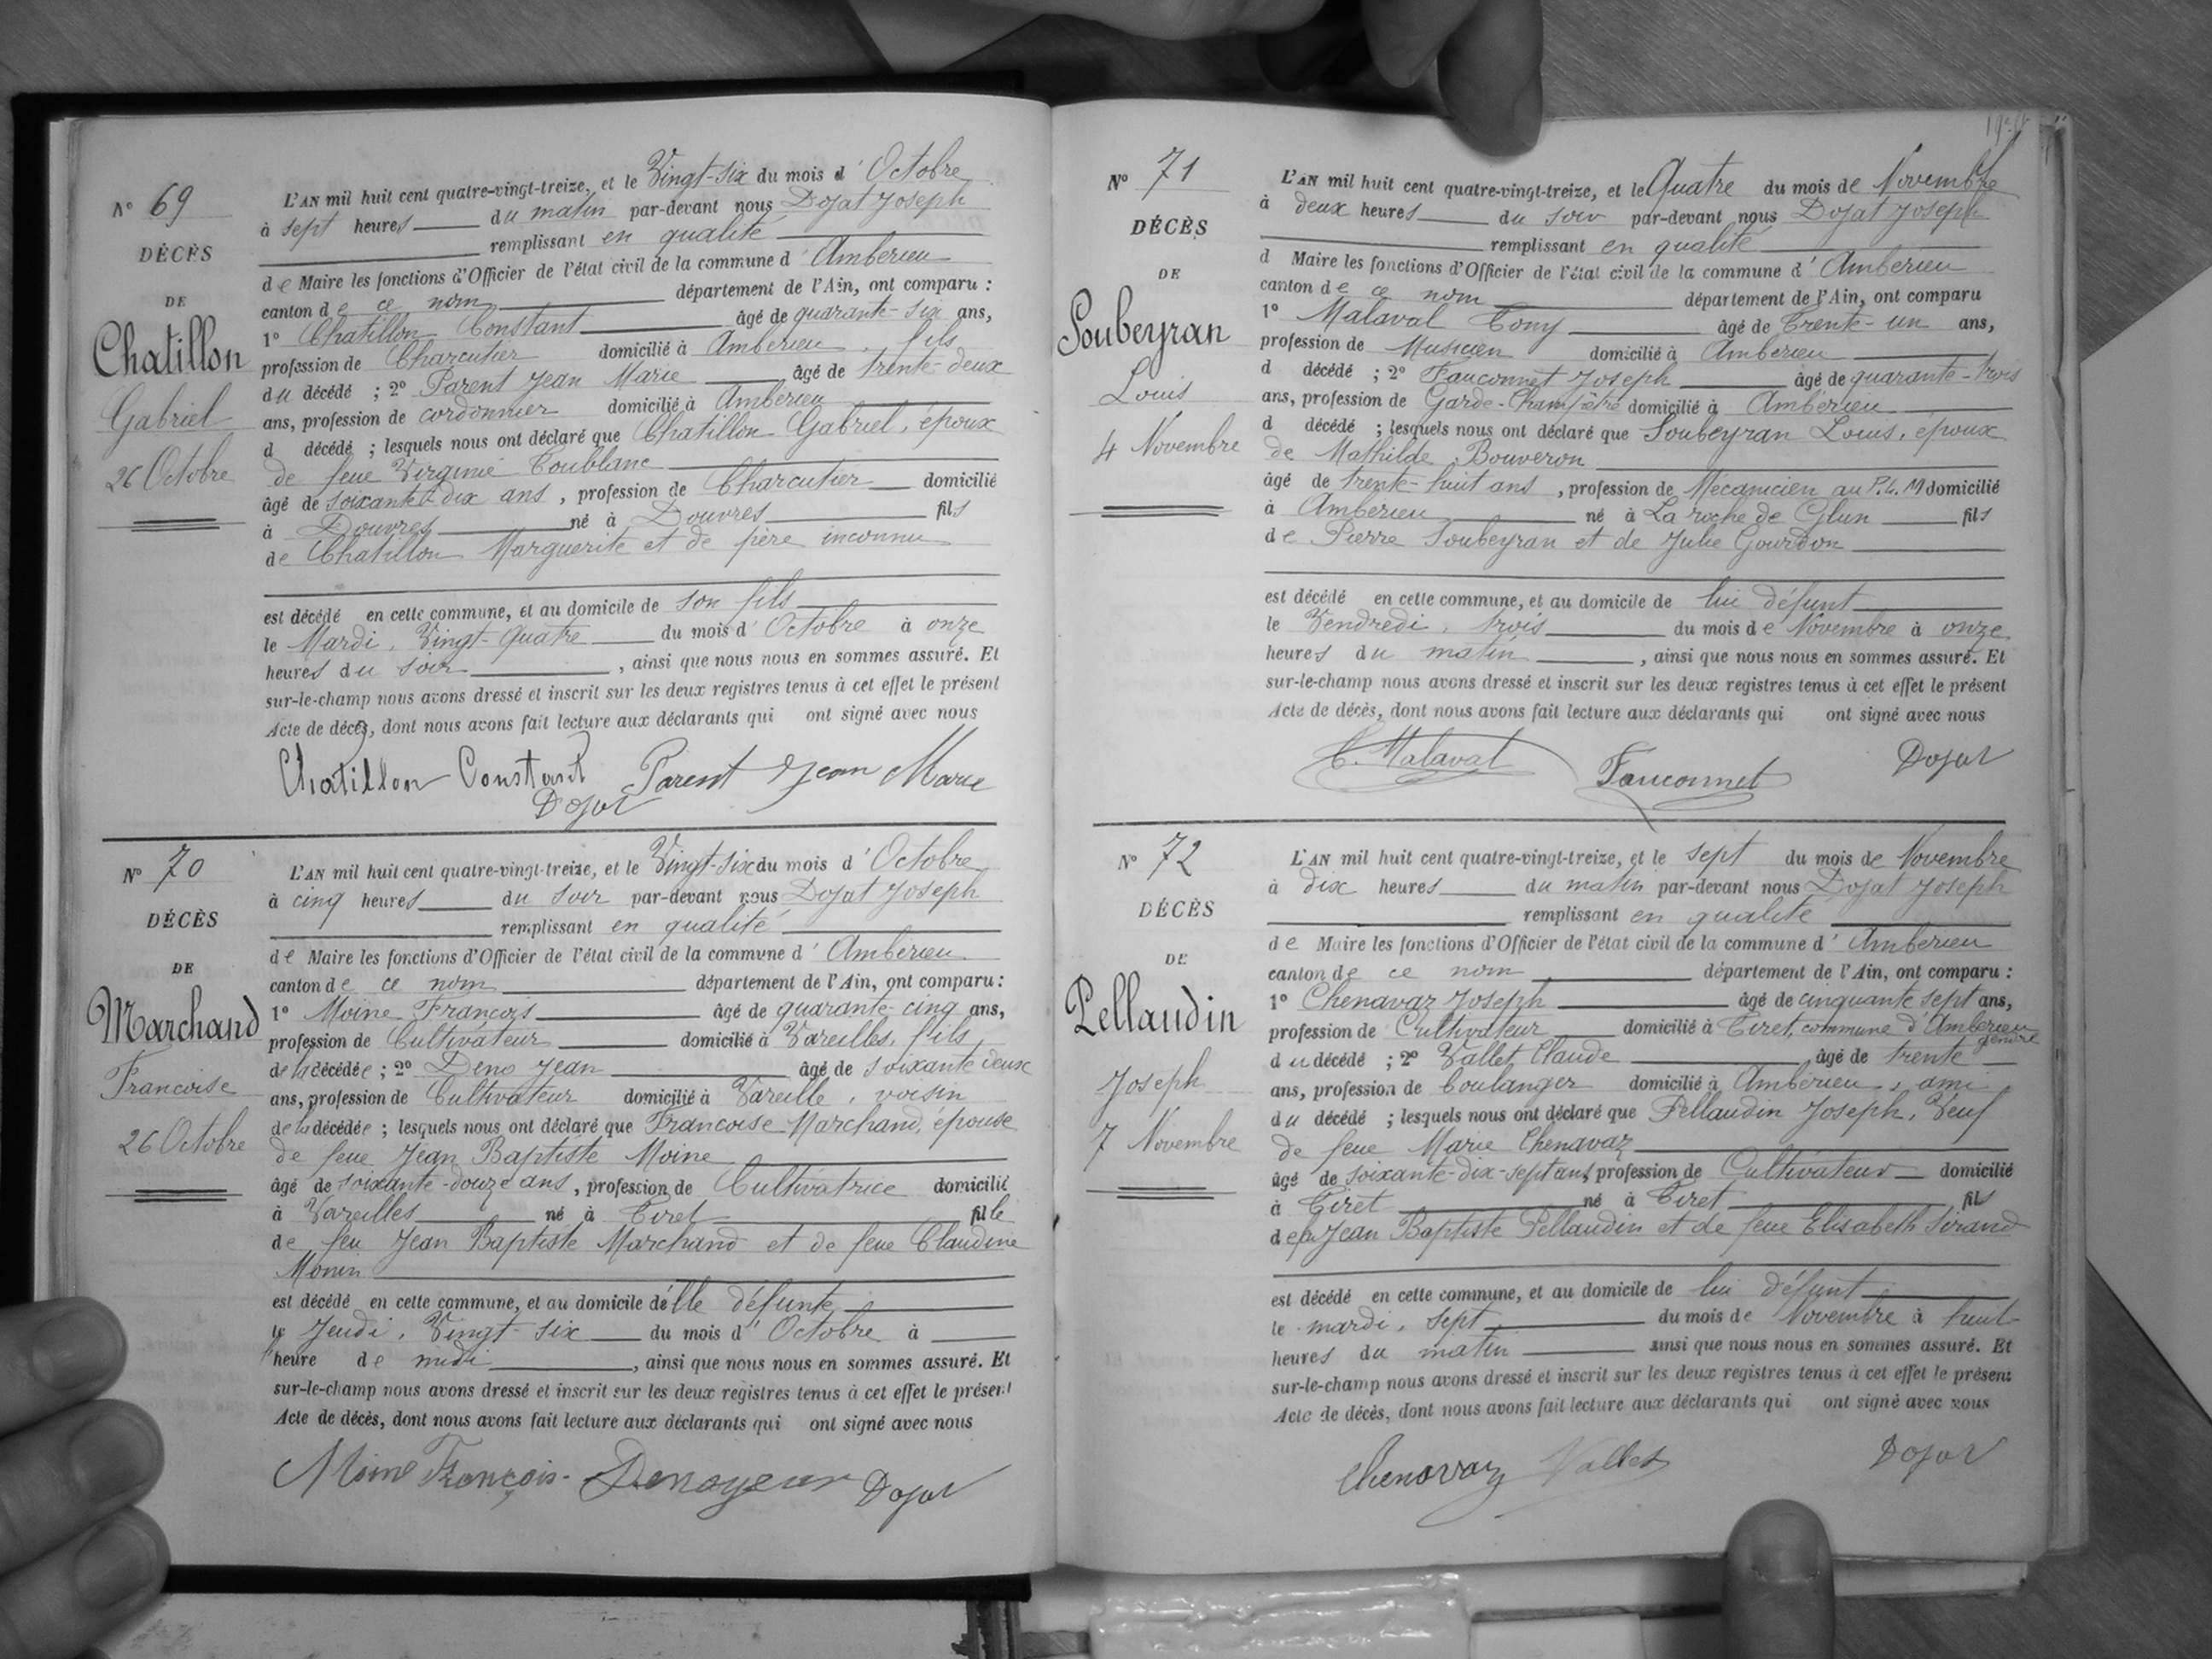 N° 69
DÉCÈS
DE
Chatillon
Gabriel
26 Octobre
L'AN mil huit cent quatre-vingt-treize, et le Vingt-six du mois d'Octobre
à sept heures du matin par-devant nous Dojat Joseph
remplissant en qualité
de Maire les fonctions d'Officier de l'état civil de la commune d'Ambérieu
canton de ce nom département de l'Ain, ont comparu :
1° Chatillon Constant âgé de quarante-six ans,
profession de Charcutier domicilié à Ambérieu, fils
du décédé ; 2° Parent Jean Marie âgé de trente-deux
ans, profession de cordonnier domicilié à Ambérieu
d décédé ; lesquels nous ont déclaré que Chatillon Gabriel, époux
de feue Virginie Toublanc
âgé de soixante-dix ans, profession de Charcutier domicilié
à Douvres né à Douvres fils
de Chatillon Marguerite et de père inconnu
est décédé en cette commune, et au domicile de son fils
le Mardi, Vingt-quatre du mois d'Octobre à onze
heures du soir, ainsi que nous nous en sommes assuré. Et
sur-le-champ nous avons dressé et inscrit sur les deux registres tenus à cet effet le présent
Acte de décès, dont nous avons fait lecture aux déclarants qui ont signé avec nous
Chatillon Constant Parent Jean Marie
Dojat
N° 70
DÉCÈS
DE
Marchand
Francoise
26 Octobre
L'AN mil huit cent quatre-vingt-treize, et le Vingt-six du mois d'Octobre
à cinq heures du soir par-devant nous Dojat Joseph
remplissant en qualité
de Maire les fonctions d'Officier de l'état civil de la commune d'Ambérieu
canton de ce nom département de l'Ain, ont comparu :
1° Moine François âgé de quarante-cinq ans,
profession de Cultivateur domicilié à Vareilles, fils
de la décédée ; 2° Deno Jean âgé de soixante deux
ans, profession de Cultivateur domicilié à Vareille, voisin
de la décédée ; lesquels nous ont déclaré que Francoise Marchand, épouse
de feue Jean Baptiste Moine
âgé de soixante-douze ans, profession de Cultivatrice domicilié
à Vareilles né à Tiret fille
de feu Jean Baptiste Marchand et de feue Claudine
Monin
est décédé en cette commune, et au domicile d'elle défunte
le Jeudi, Vingt-six du mois d'Octobre à
heure de midi, ainsi que nous nous en sommes assuré. Et
sur-le-champ nous avons dressé et inscrit sur les deux registres tenus à cet effet le présent
Acte de décès, dont nous avons fait lecture aux déclarants qui ont signé avec nous
Moine François Denoyeur Dojat
N° 71
DÉCÈS
DE
Soubeyran
Louis
4 Novembre
L'AN mil huit cent quatre-vingt-treize, et le Quatre du mois de Novembre
à deux heures du soir par-devant nous Dojat Joseph
remplissant en qualité
d Maire les fonctions d'Officier de l'état civil de la commune d'Ambérieu
canton de ce nom département de l'Ain, ont comparu
1° Malaval Tony âgé de Trente-un ans,
profession de Musicien domicilié à Ambérieu
d décédé ; 2° Fauconnet Joseph âgé de quarante-trois
ans, profession de Garde-Champêtre domicilié à Ambérieu
d décédé ; lesquels nous ont déclaré que Soubeyran Louis, époux
de Mathilde Bouveron
âgé de trente-huit ans, profession de Mécanicien au P.L.M domicilié
à Ambérieu né à La roche de Glun fils
de Pierre Soubeyran et de Julie Gourdon
est décédé en cette commune, et au domicile de lui défunt
le Vendredi, trois du mois de Novembre à onze
heures du matin, ainsi que nous nous en sommes assuré. Et
sur-le-champ nous avons dressé et inscrit sur les deux registres tenus à cet effet le présent
Acte de décès, dont nous avons fait lecture aux déclarants qui ont signé avec nous
Malaval Fauconnet Dojat
N° 72
DÉCÈS
DE
Pellaudin
Joseph
7 Novembre
L'AN mil huit cent quatre-vingt-treize, et le sept du mois de Novembre
à dix heures du matin par-devant nous Dojat Joseph
remplissant en qualité
de Maire les fonctions d'Officier de l'état civil de la commune d'Ambérieu
canton de ce nom département de l'Ain, ont comparu :
1° Chenavaz Joseph âgé de cinquante sept ans,
profession de Cultivateur domicilié à Tiret, commune d'Ambérieu gendre
du décédé ; 2° Vallet Claude âgé de trente
ans, profession de boulanger domicilié à Ambérieu, ami
du décédé ; lesquels nous ont déclaré que Pellaudin Joseph, Veuf
de feue Marie Chenavaz
âgé de soixante-dix-sept ans, profession de Cultivateur domicilié
à Tiret né à Tiret fils
de feu Jean Baptiste Pellaudin et de feue Elisabeth Sirand
est décédé en cette commune, et au domicile de lui défunt
le mardi, sept du mois de Novembre à huit
heures du matin ainsi que nous nous en sommes assuré. Et
sur-le-champ nous avons dressé et inscrit sur les deux registres tenus à cet effet le présent
Acte de décès, dont nous avons fait lecture aux déclarants qui ont signé avec nous
Chenavaz Vallet Dojat